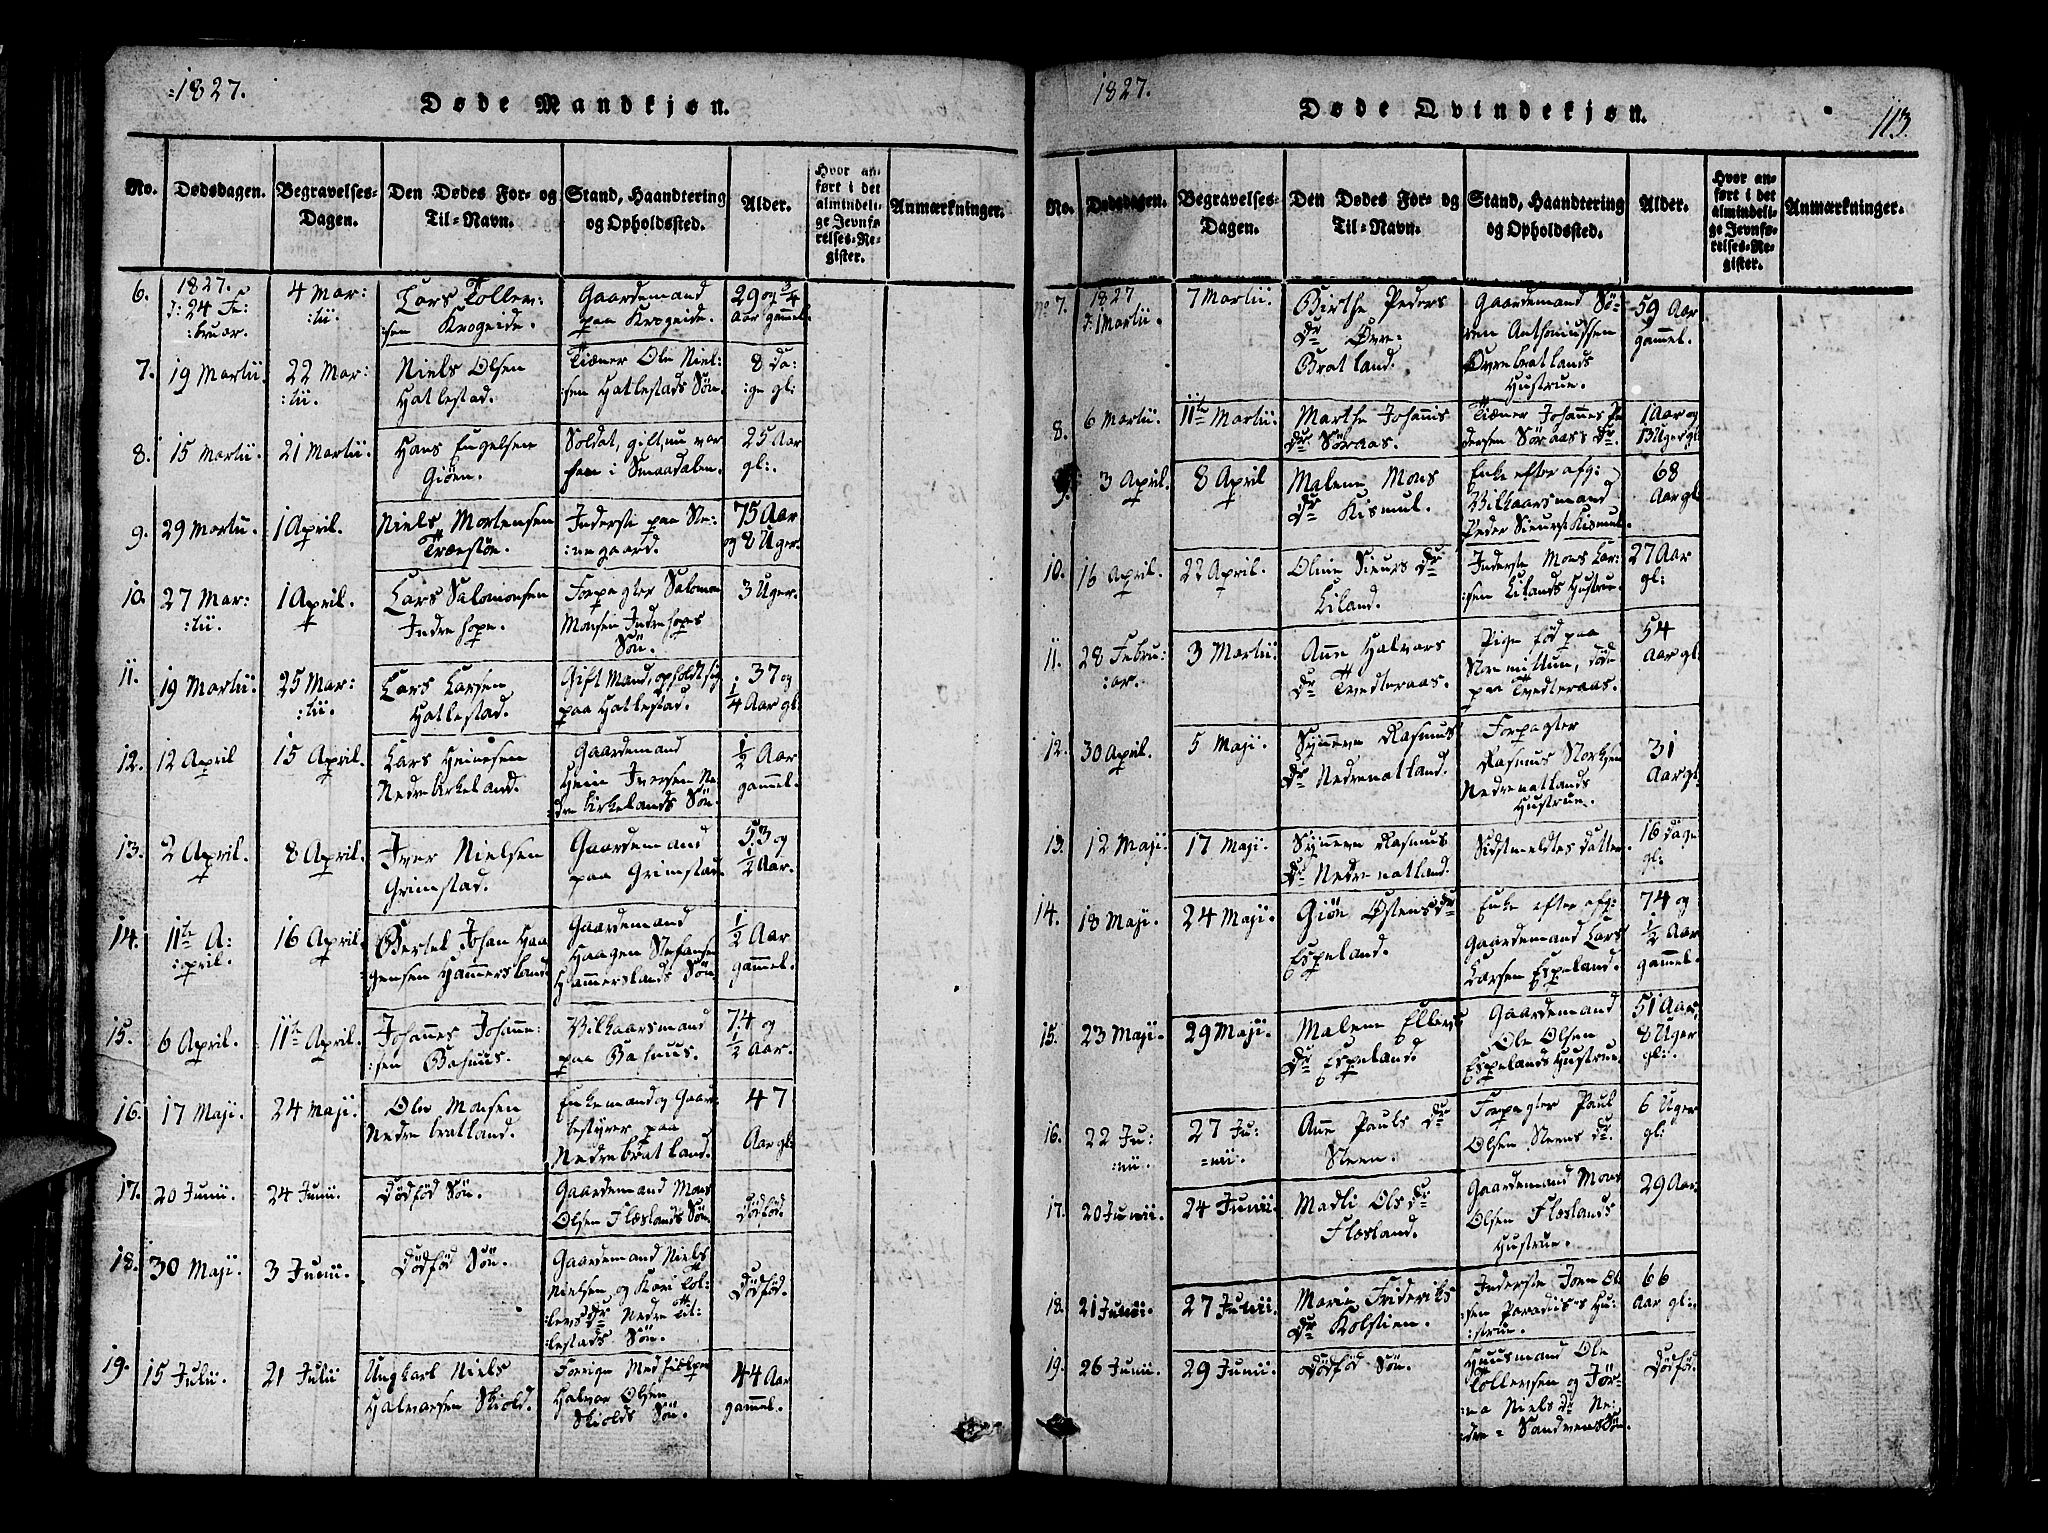 1827.
Døde Mandkjøn.
No. Dødsdagen. Begravelses-Dagen. Den Dødes For- og Til-Navn. Stand, Haandtering og Opholdssted. Alder. Hvor anført i det almindelige Jevnførelses-Register. Anmærkninger.
6. 1827. d: 24 Februar. 4 Martii. Lars Tollevsen Krogeide. Gaardemand paa Krogeide. 29 og 3/4 Aar gammel.
7. 19 Martii. 22 Martii. Niels Olsen Hatlestad. Tiæner Ole Nielsen Hatlestads Søn. 8 Dage gl:
8. 15 Martii. 21 Martii. Hans Engelsen Giøen. Soldat, gift, nu var i Smaadalen. 25 Aar gl:.
9. 29 Martii. 1 April. Niels Mortensen Trænstøn. Inderst paa Nenegaard. 75 Aar og 8 Uger.
10. 27 Martii. 1 April. Lars Salomonsen Indrehope. Forpagter Salomon Monsen Indrehopes Søn. 3 Uger.
11. 19 Martii. 25 Martii. Lars Larsen Hatlestad. Gift Mand, opholdt sig paa Hatlestad. 37 og 1/4 Aar gl:
12. 12 April 15 April. Lars Heinesen Nedrebirkeland. Gaardemand Heine Iversen Nedrebirkelands Søn. 1/2 Aar gammel.
13. 2 April. 8 April. Iver Nielsen Grimstad. Gaardemand paa Grimstad. 53 og 1/2 Aar.
14. 11te April. 16 April. Bertel Johan Haagensen Hammersland. Gaardemand Haagen Stefansen Hammerslands Søn. 1/2 Aar gammel.
15. 6 April. 11te April. Johannes Johannesen Bahuus. Vilkaarsmand paa Bahuus. 74 og 1/2 Aar.
16. 17 Maji. 24 Maji. Ole Monsen Nedrebratland. Enkemand og Gaardbestyrer paa Nedrebratland. 47 Aar gl:
17. 20 Junii. 24 Junii. Dødfød Søn. Gaardemand Mons Olsen Flæslands Søn. Dødfød.
18. 30 Maji. 3 Junii. Dødfød Søn. Gaardemand Niels Nielsen og Kari Tollevs Dr Nedre Titlestads Søn. Dødfød.
19. 15 Julii. 21 Julii Ungkarl Niels Halvarsen Skiold. Forrige Medhielper Halvar Olsen Skiolds Søn. 44 Aar gammel.
1827.
Døde Qvindekjøn.
113.
No. Dødsdagen. Begravelses-Dagen. Den Dødes For- og Til-Navn. Stand, Haandtering og Opholdssted. Alder. Hvor anført i det almindelige Jevnførelses-Register. Anmærkninger.
No 7. 1827 d: 1 Martii. 7 Martii. Birthe Peders Dr Øvre-Bratland. Gaardemand Søren Anthoniussen Øvrebratlands Hustrue. 59 Aar gammel.
8. 6 Martii. 11te Martii. Marthe Johannis Dr Søraas. Tiæner Johannes Pedersen Søraas Dr. 1 Aar og 13 Uger gl:
9. 3 April. 8 April Malene Mons Dr Kismul. Enke efter afg: Vilkaarsmand Peder Siurs: Kismul. 68 Aar gl:
10. 16 April. 22 April. Oline Sieurs Dr Liland. Inderste Mons Larsen Lilands Hustrue. 27 Aar gl:
11. 28 Februar. 3 Martii. Anne Halvars Dr Tvedteraas. Pige fød paa Stenmittun, døde paa Tvedteraas. 54 Aar gl:
12. 30 April. 5 Maji. Synneva Rasmus Dr Nedrenatland. Forpagter Rasmus Nedrenatlands Hustrue. 31 Aar gl:
13. 12 Maji. 17 Maji. Synneva Rasmus Dr Nedrenatland. Sidstmeldtes Datter. 16 Dage gl:
14. 18 Maji. 24 Maji. Giøn Østens Dr Espeland. Enke efter afg: Gaardemand Lars Larsen Espeland. 74 og 1/2 Aar gammel.
15. 23 Maji. 29 Maji. Malene Ellevs Dr Espeland. Gaardemand Ole Olsen Espelands Hustrue. 51 Aar, 8 Uger gl:.
16. 22 Junii. 27 Junii. Anne Pauls Dr Steen. Forpagter Paul Olsen Steens Dr. 6 Uger gl:
17. 20 Junii. 24 Junii. Madli Ols Dr Flæsland. Gaardemand Mons Olsen Flæslands Hustrue. 29 Aar.
18. 21 Junii. 27 Junii. Marie Frideriks Dr Kolstien. Inderste Joen Olsen Paradiis-s Hustrue. 66 Aar gl:.
19. 26 Junii. 29 Junii. Dødfød Søn. Huusmand Ole Tollevsen og Jørina Niels Dr Nedre-Sandvens Søn. Dødfød.